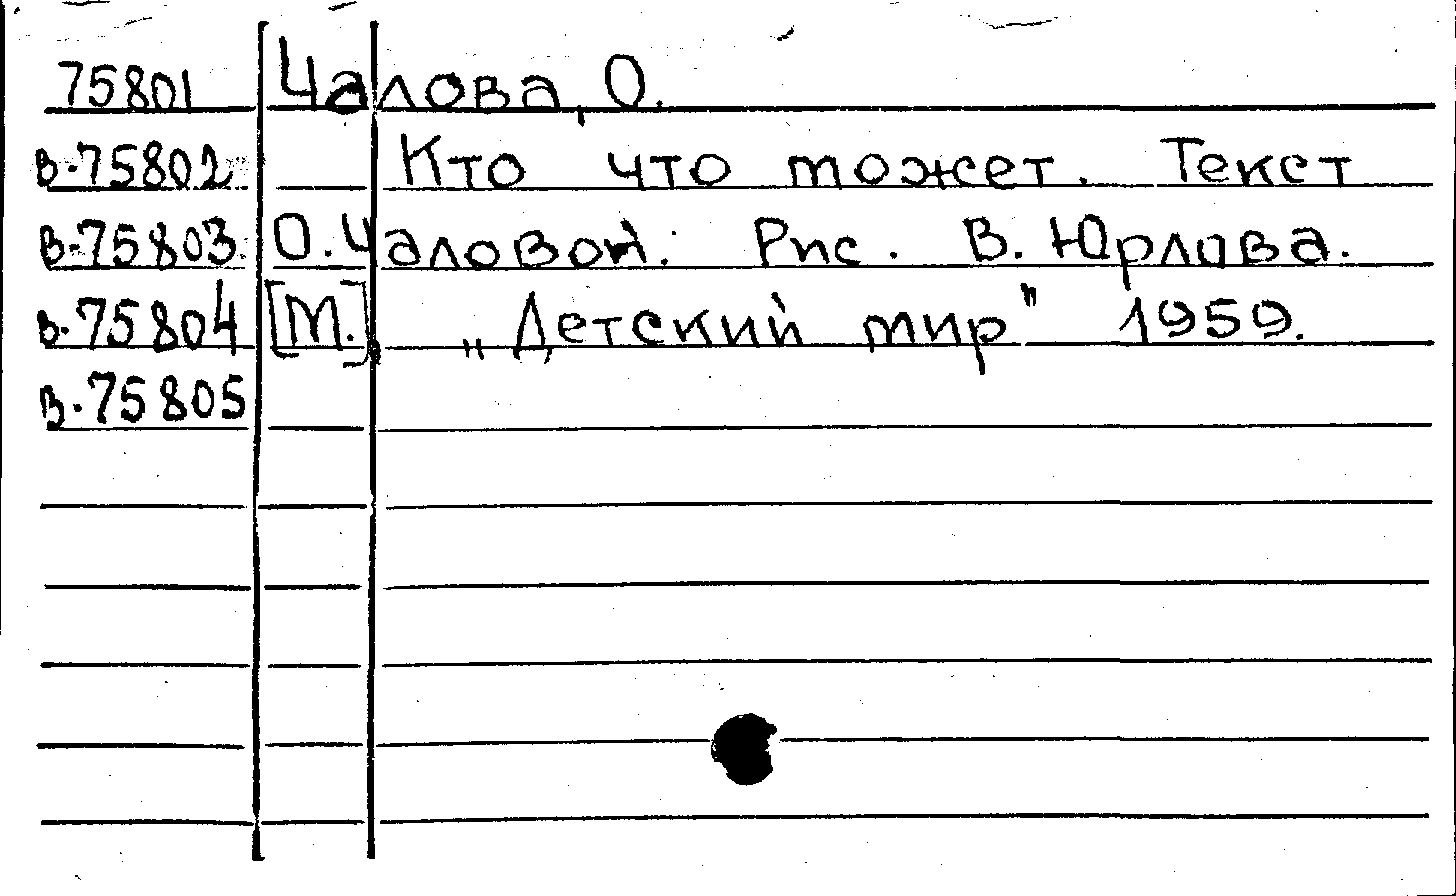 75801 Чалова, О.
в.75802 Кто что может. Текст
в.75803 О. Чаловой. Рис. В. Юрлова.
в.75804 [М.], „Детский мир" 1959.
в.75805